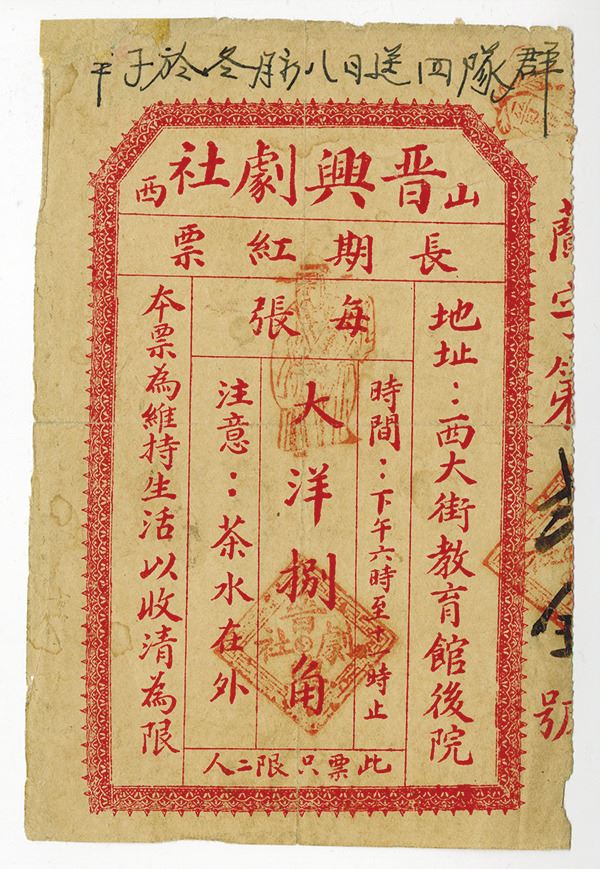 群隊四送日八
山西晋興劇社
長期紅票
地址：西大街教育館後院
每張
時間：下午六時至十一時止
大洋捌角
注意：茶水在外
本票為維持生活以收清為限
此票只限二人
字第
號
晋劇社